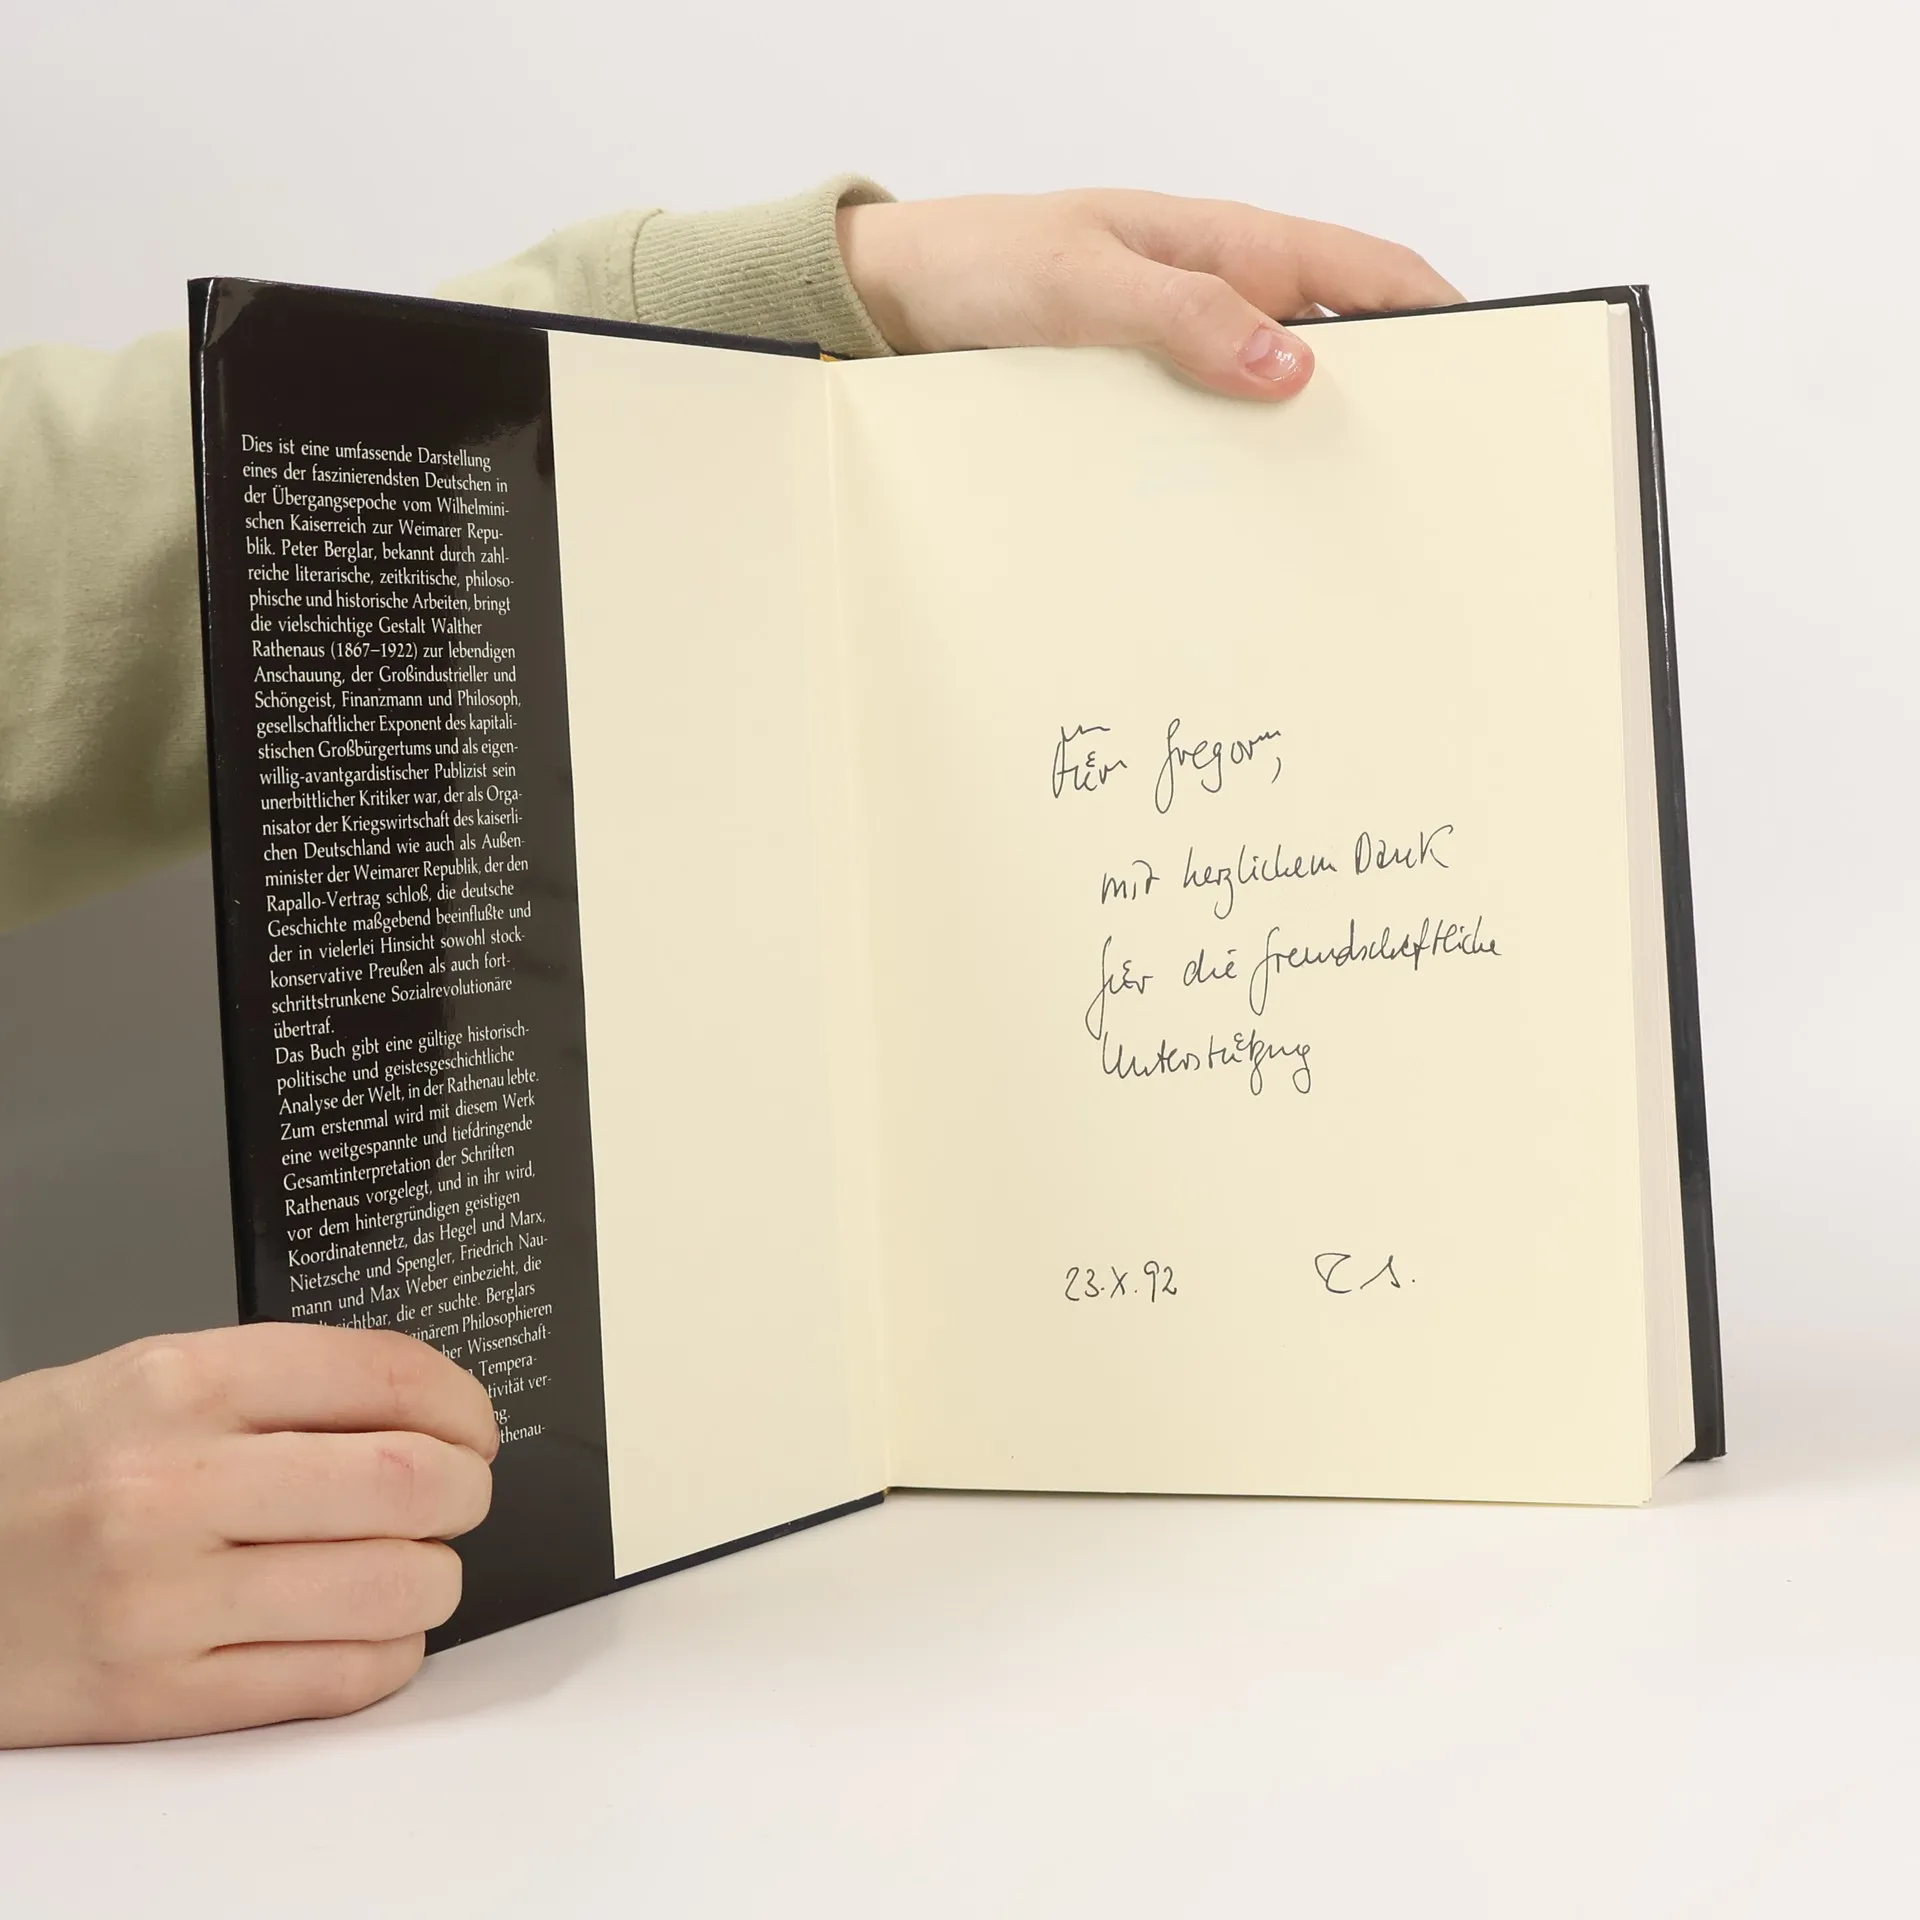 Dies ist eine umfassende Darstellung
eines der faszinierendsten Deutschen in
der Übergangsepoche vom Wilhelmini-
schen Kaiserreich zur Weimarer Repu-
blik. Peter Berglar, bekannt durch zahl-
reiche literarische, zeitkritische, philoso-
phische und historische Arbeiten, bringt
die vielschichtige Gestalt Walther
Rathenaus (1867–1922) zur lebendigen
Anschauung, der Großindustrieller und
Schöngeist, Finanzmann und Philosoph,
gesellschaftlicher Exponent des kapitali-
stischen Großbürgertums und als eigen-
willig-avantgardistischer Publizist sein
unerbittlicher Kritiker war, der als Orga-
nisator der Kriegswirtschaft des kaiserli-
chen Deutschland wie auch als Außen-
minister der Weimarer Republik, der den
Rapallo-Vertrag schloß, die deutsche
Geschichte maßgebend beeinflußte und
der in vielerlei Hinsicht sowohl stock-
konservative Preußen als auch fort-
schrittstrunkene Sozialrevolutionäre
übertraf.
Das Buch gibt eine gültige historisch-
politische und geistesgeschichtliche
Analyse der Welt, in der Rathenau lebte.
Zum erstenmal wird mit diesem Werk
eine weitgespannte und tiefdringende
Gesamtinterpretation der Schriften
Rathenaus vorgelegt, und in ihr wird,
vor dem hintergründigen geistigen
Koordinatennetz, das Hegel und Marx,
Nietzsche und Spengler, Friedrich Nau-
mann und Max Weber einbezieht, die
sichtbar, die er suchte. Berglars
Philosophieren
Wissenschaft-
Tempera-
tivität ver-
ng.
thenau-
Für Gregor,
mit herzlichem Dank
für die freundschaftliche
Unterstützung
23.X.92